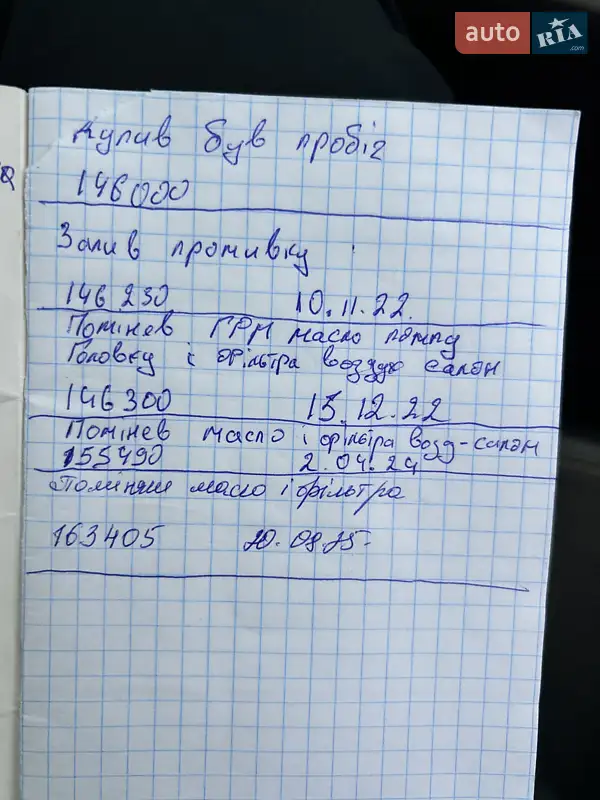 auto RIA .com
Купив був пробіг
146000
Залив промивку
146 230 10.11.22.
Помінев ГРМ масло помпу
Головку і фільтра воздух салон
146300 15.12.22
Помінев масло і фільтра возд-салон
155490 2.04.24
Поминяш масло і фільтра
163405 20.09.25.